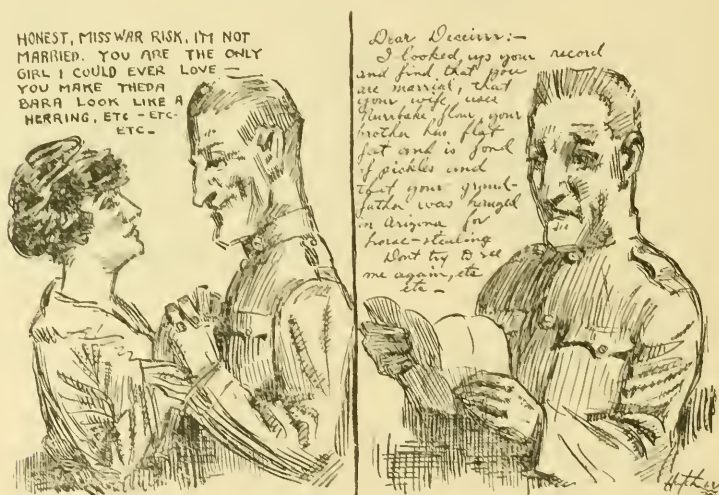 HONEST, MISS WAR RISK, I'M NOT
MARRIED. YOU ARE THE ONLY
GIRL I COULD EVER LOVE —
YOU MAKE THEDA
BARA LOOK LIKE A
HERRING, ETC - ETC-
ETC -
Dear Deceiver:-
I looked up your record
and find that you
are married, that
your wife uses
flour, your
brother has flat
feet and is fond
of pickles and
that your grand-
father was hanged
in Arizona for
horse-stealing
Don't try to see
me again, etc
etc -